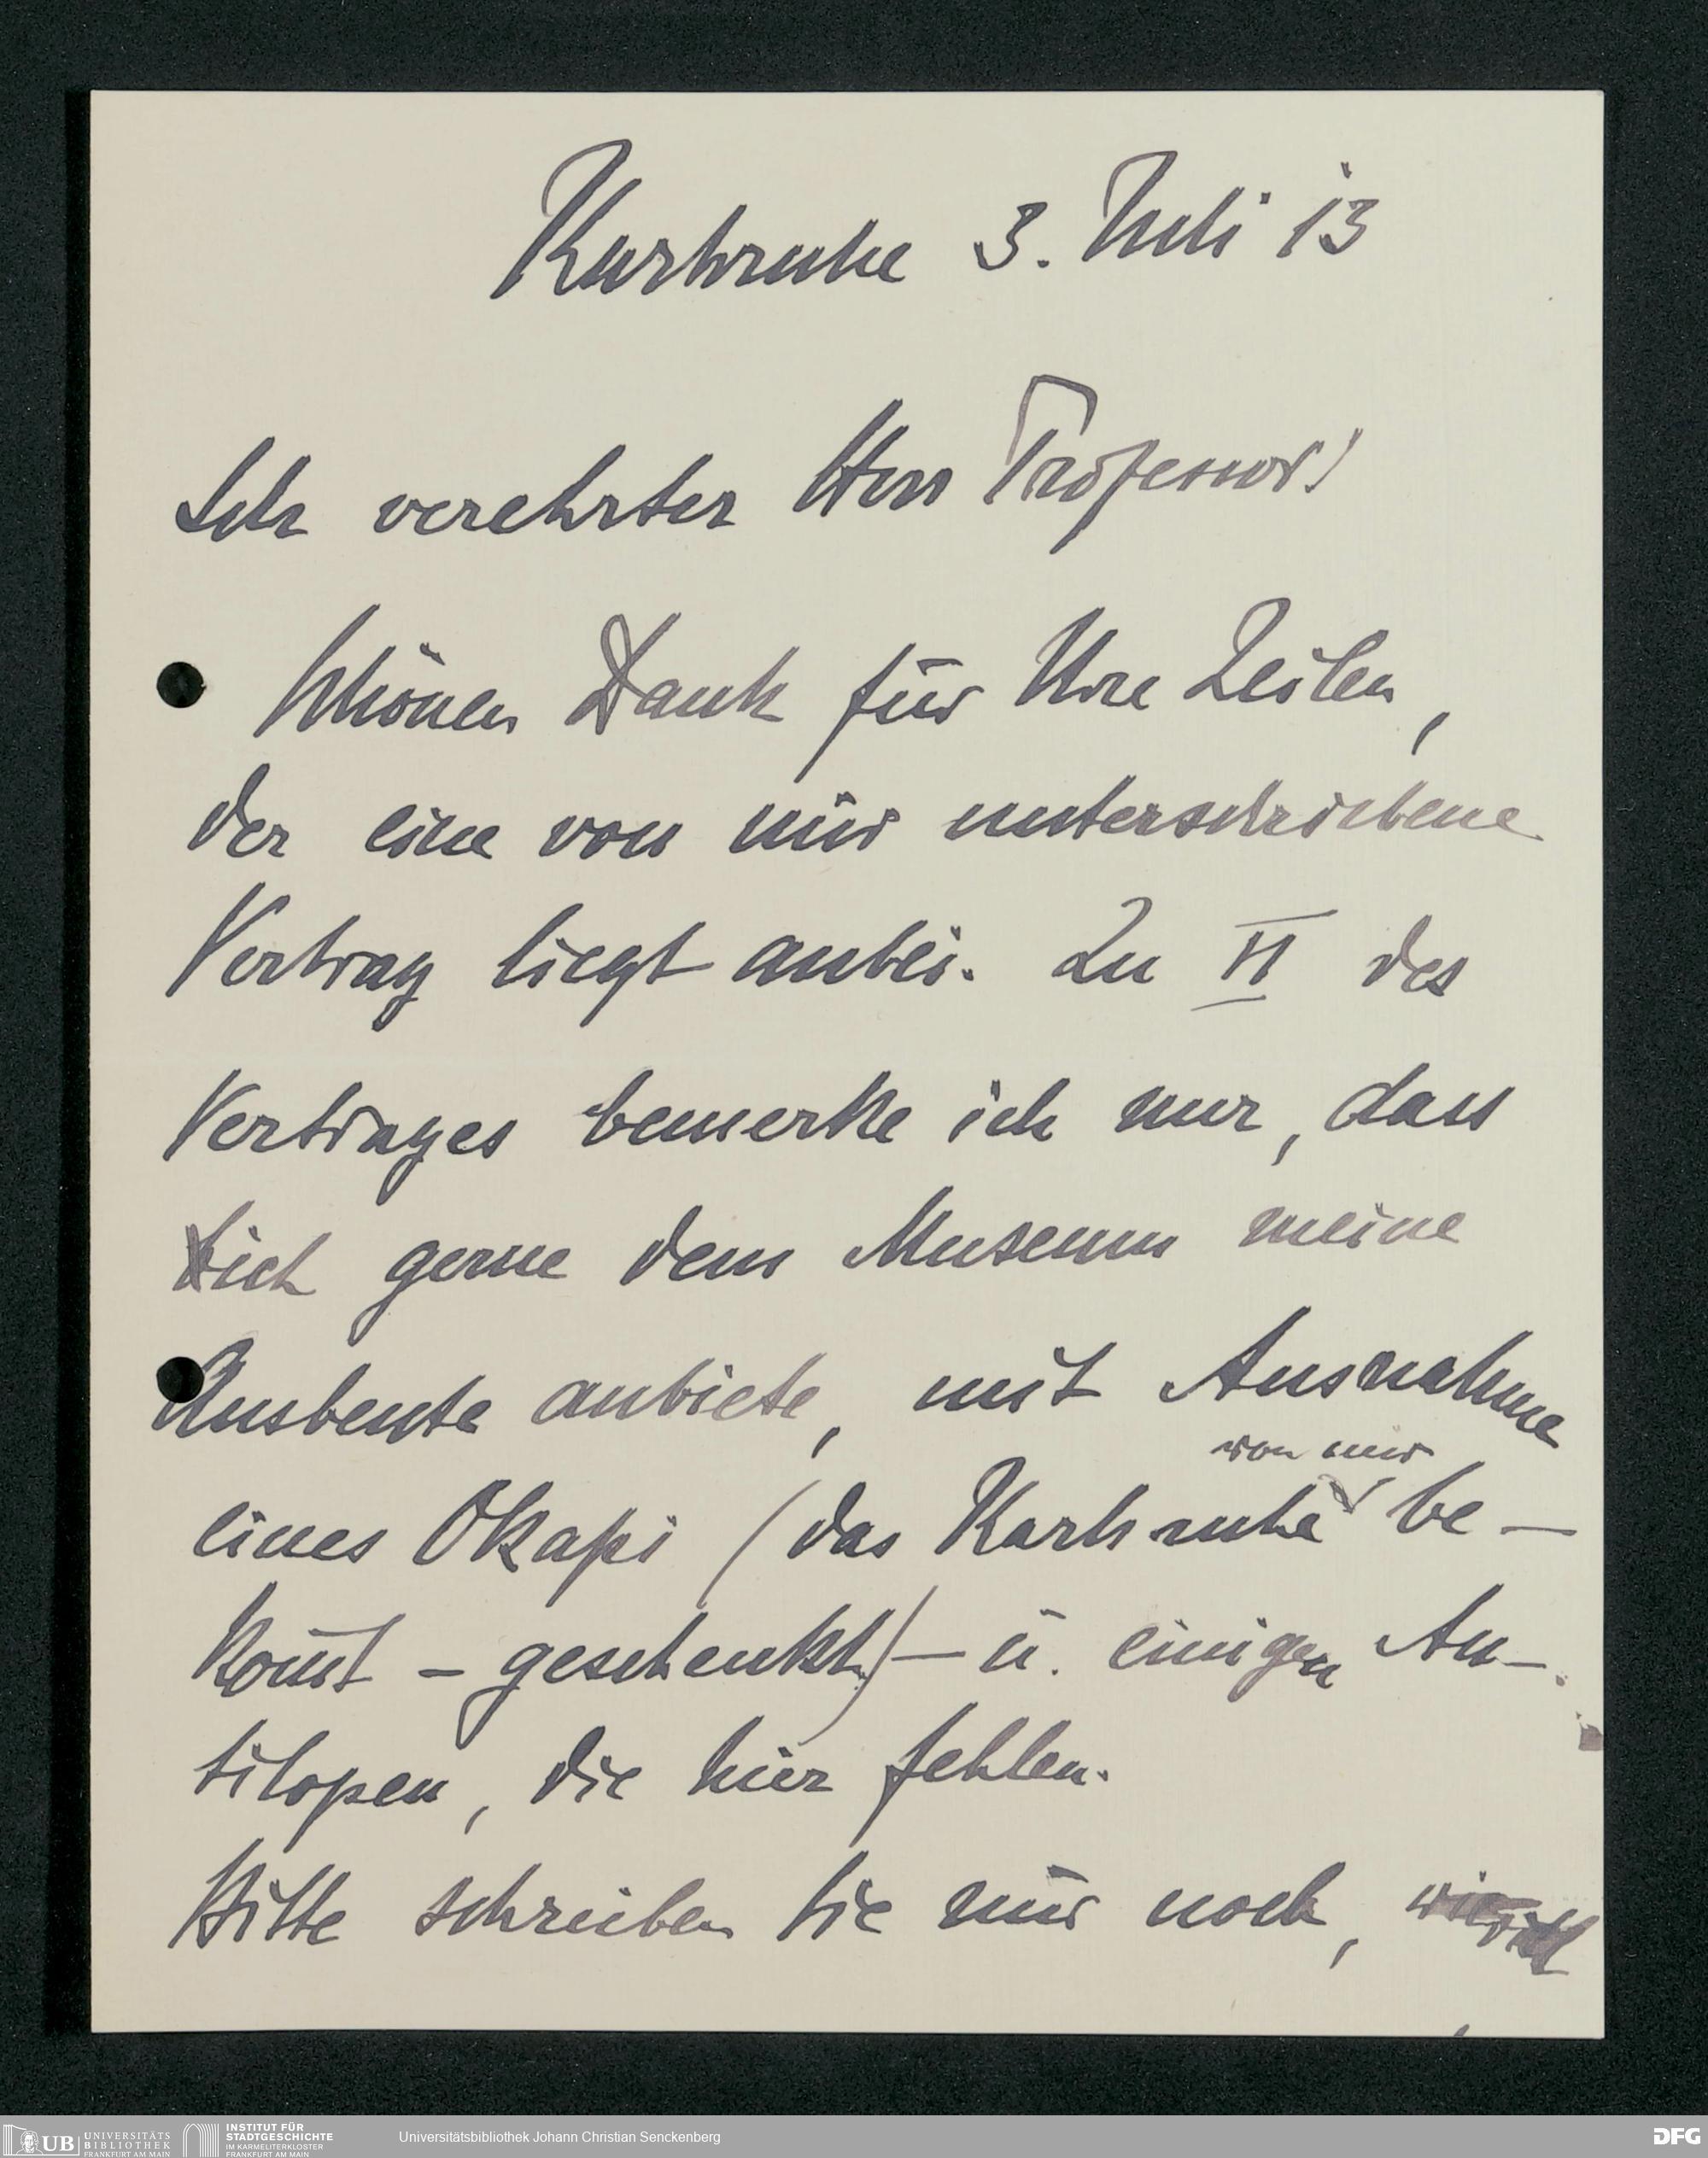 Karlsruhe 3. Juli 13
Sehr verehrter Herr Professor!
Schönen Dank für Ihre Zeilen,
der eine von mir unterschriebene
Vertrag liegt anbei. Zu VI des
Vertrages bemerke ich nur, dass
ich gerne dem Museum meine
Ausbeute anbiete, mit Ausnahme
von mir
eines Okapi (das Karlsruhe be-
kom̅t - geschenkt) - u. einigen An-
tilopen, die hier fehlen.
Bitte schreiben Sie mir noch,
UB UNIVERSITÄTS
BIBLIOTHEK
FRANKFURT AM MAIN
INSTITUT FÜR
STADTGESCHICHTE
IM KARMELITERKLOSTER
FRANKFURT AM MAIN
Universitätsbibliothek Johann Christian Senckenberg
DFG